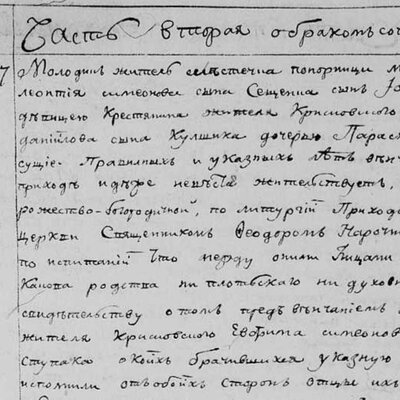 Часть вторая о бракомъсоч
7 Молодикъ житель мѣстечка попорницы М
леонтія симеонова сына Сещенка сынъ Іо
дѣвицею Крестянина жителя Крисковского
даніилова сына Кулшиха дочерью Парас
сущіе Правилныхъ и указныхъ лѣтъ вѣн
приходъ идѣже невѣста жителствуетъ,
рожество-богородичной, по литургіи Приход
церкви Священникомъ Ѳеодоромъ Нарочи
по испитаніи что между оними Лицами
Какова родства ни плотьскаго ни духовн
свидѣтельству о томъ предъ вѣнчаніемъ
жителя Крисковского Евфима симеонов
ступака о коихъ брачившихся указную
исполнили отъ обоихъ сторонъ отцы ихъ